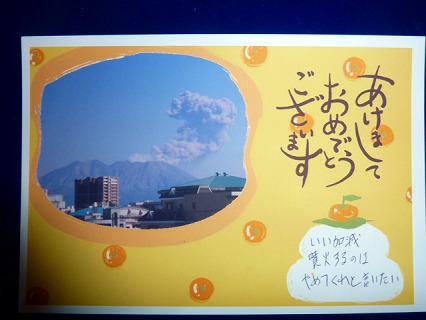 あけまして
おめでとう
ございます
いい加減
噴火するのは
やめてくれと言いたい